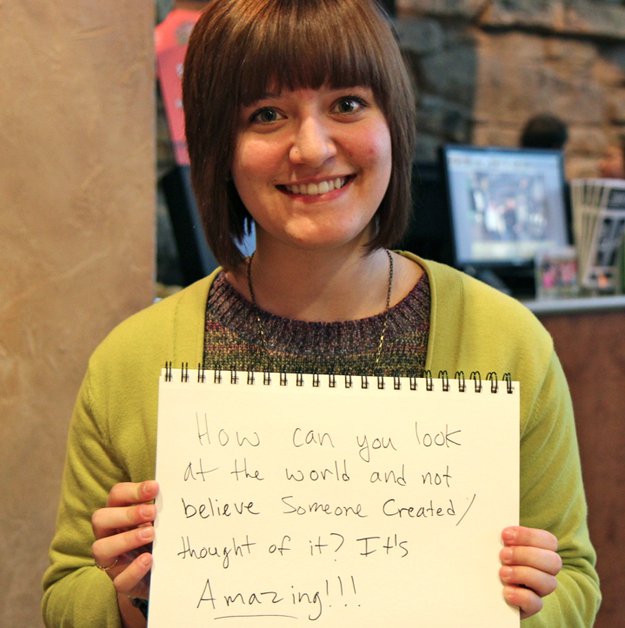 How can you look
at the world and not
believe Someone Created/
thought of it? It's
Amazing!!!